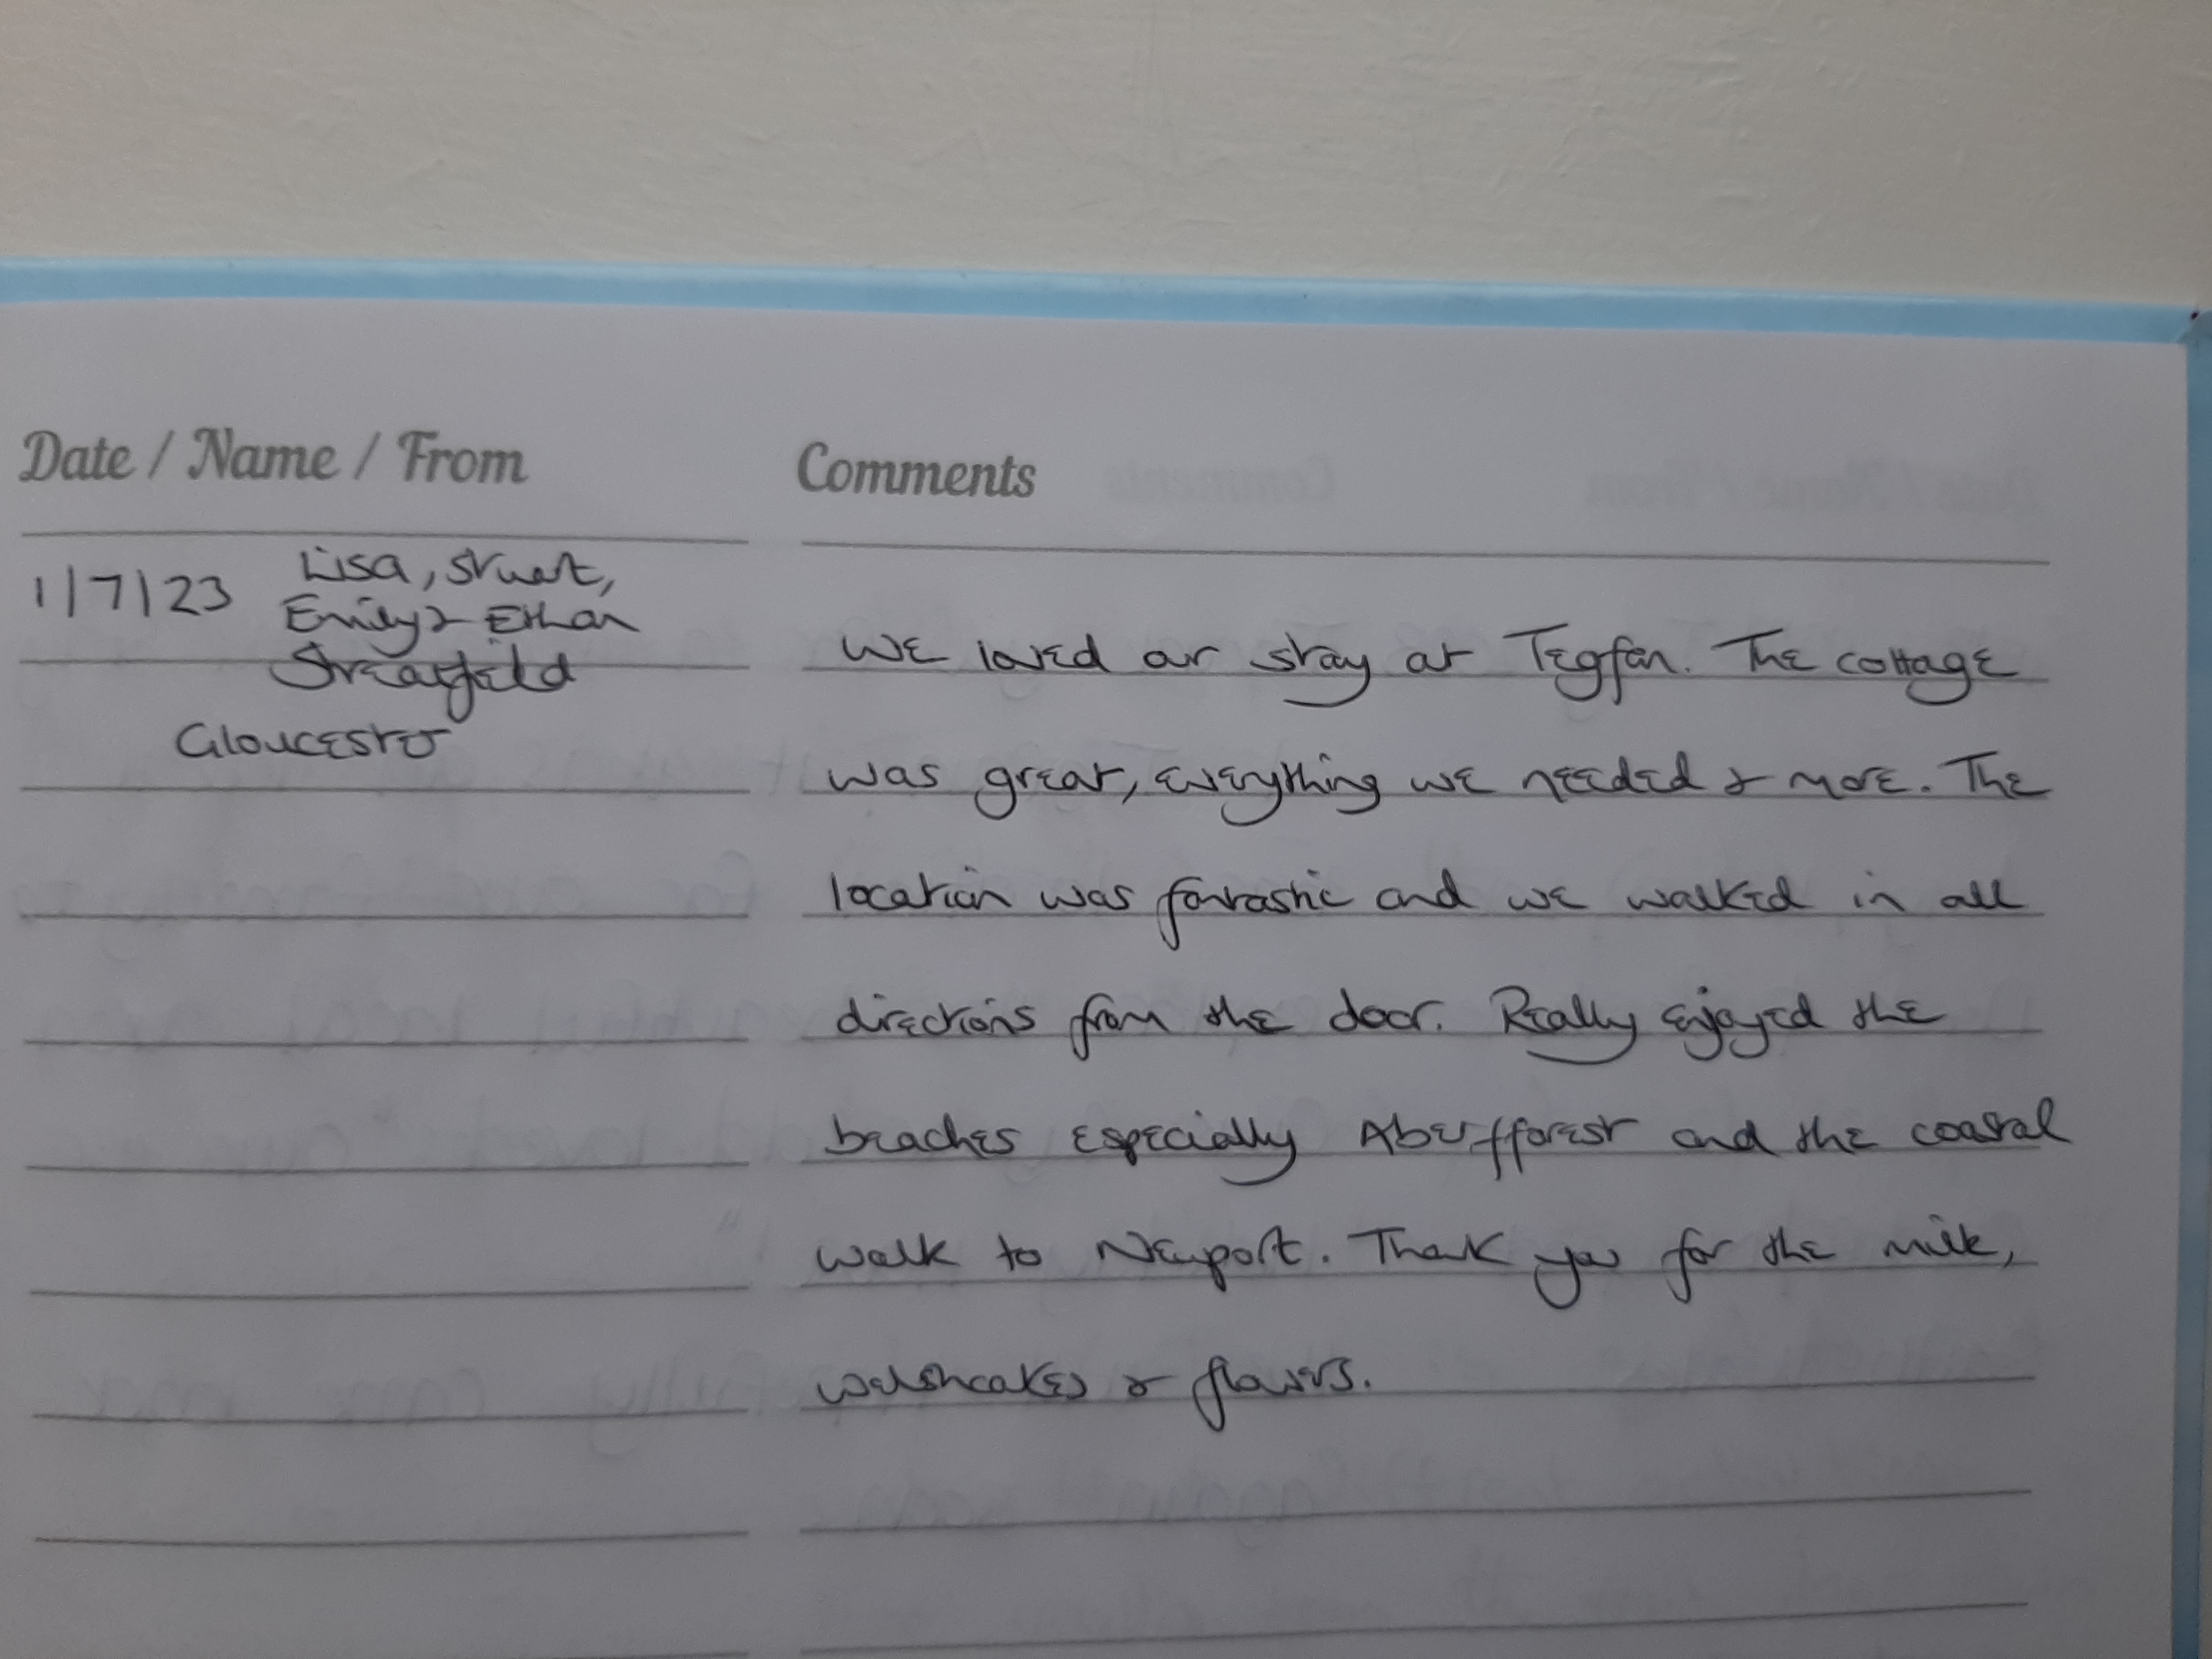 Date / Name / From
Comments
1/7/23 Lisa, Stuart,
Emily & Ethan
Streatfield
Gloucester
We loved our stay at Tegfan. The cottage
was great, everything we needed & more. The
location was fantastic and we walked in all
directions from the door. Really enjoyed the
beaches especially Aberfforest and the coastal
walk to Newport. Thank you for the milk,
welshcakes & flowers.